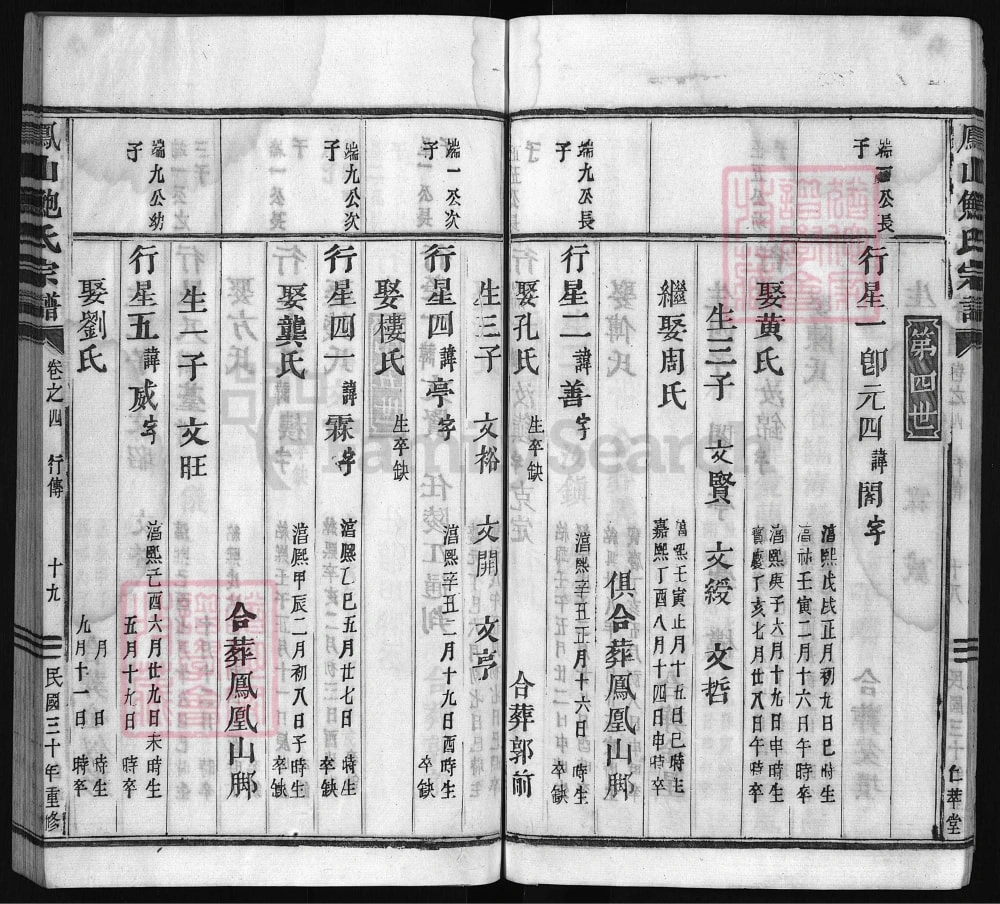 鳳山鮑氏宗譜
仁萃堂
第四世
端一公長子
行星一卽元四諱閎字
淳熙戊戌正月初九日巳時生
淳祐壬寅二月十六日午時卒
娶黃氏
淳熙庚子六月十九日申時生
寶慶丁亥七月廿八日午時卒
生三子 文賢 文綬 文哲
繼娶周氏
淳熙壬寅正月十五日巳時生
嘉熙丁酉八月十四日申時卒
俱合葬鳳凰山脚
端九公長子
行星二諱善字
淳熙辛丑正月十六日 時生
卒缺
娶孔氏
生卒缺
合葬郭前
生三子 文裕 文開 文亨
端一公次子
行星四諱亭字
淳熙辛丑二月十九日酉時生
卒缺
娶樓氏
生卒缺
端九公次子
行星四一諱霖字
淳熙乙巳五月廿七日 時生
卒缺
娶龔氏
淳熙甲辰二月初八日子時生
卒缺
合葬鳳凰山脚
生一子 文旺
端九公幼子
行星五諱威字
淳熙己酉六月廿九日未時生
五月十九日 時卒
娶劉氏
月 日 時生
九月十一日 時卒
鳳山鮑氏宗譜
卷之四 行傳 十九 民國三十年重修
FamilySearch